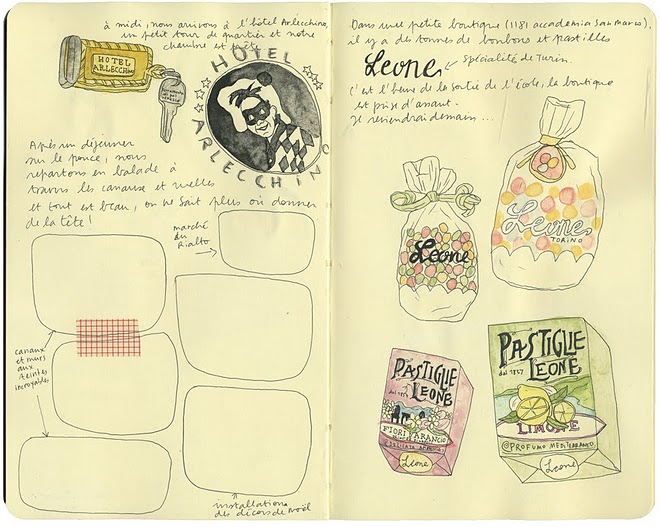 à midi, nous arivons à l'hôtel Arlecchino,
un petit tour de quartier et notre
chambre est prête
HOTEL
ARLECCHINO
HOTEL
ARLECCHINO
Après un déjeuner
sur le pouce, nous
repartons en balade à
travers les canaux et ruelles
et tout est beau, on ne sait plus où donner
de la tête!
marché
du
Rialto
canaux
et murs
aux
teintes
incroyables
installations
des décors de Noël
Dans une petite boutique (1181 accademia San Marco),
il y a des tonnes de bonbons et pastilles
Leone
Spécialité de Turin.
C'est l'heure de la sortie de l'école, la boutique
est prise d'assaut.
Je reviendrai demain...
Leone
Leone
TORINO
PASTIGLIE
LEONE
dal 1857
FIORI ARANCIO
Leone
PASTIGLIE
dal 1857 LEONE
LIMONE
PROFUMO MEDITERRANEO
Leone